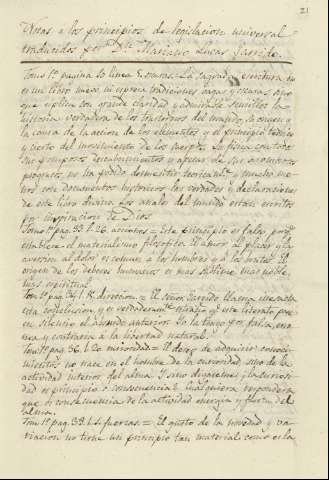 21
Notas a los principios de legislacion universal
traducidos por Dn. Mariano Lucas Garrido.
Tomo 1º pagina 10 linea 8. oscuras = La sagrada escritura no
es un libro nuevo, ni encierra tradiciones vagas y oscuras, sino
que explica con grande claridad y admirable sencillez la
historia verdadera de los trastornos del mundo, su origen y
la causa de la accion de los elementos y el principio
y cierto del movimiento de los cuerpos. La fisica con todos
sus pomposos descubrimientos y apesar de sus asombrosos
progresos, no ha podido desmentir y mucho me-
nos con documentos historicos las verdades y declaraciones
de este libro divino. Los anales del mundo estan escritos
por inspiracion de Dios.
Tomo 1º pag. 33. l. 26. acciones = Este principio es falso porqe
establece el materialismo filosofico. El amor al placer y la
aversion al dolor es comun a los hombres y a los brutos. El
origen de los deberes humanos es mas sublime, mas noble,
mas espiritual.
Tomo 1º pag. 34. l. 18. direccion. = El Señor Garrido llama inexacta
esta conclusion, y es verdaderamente estraño qe este literato pase
en silencio el absurdo anterior. Yo la tengo por falsa, erro-
nea y contraria a la libertad natural.
Tomo 1º pag. 36. l. 20 curiosidad = El deseo de adquirir conoci-
mientos no nace en el hombre de la curiosidad sino de la
actividad interior del alma. Y sino digaseme ¿la curiosi-
dad es principio o consecuencia? Cualquiera respondera
que es consecuencia de la actividad energia y fuerza del
alma.
Tomo 1º pag. 39. l. 4. fuerzas. = El gusto de la novedad y va-
riacion no tiene un principio tan material como es la